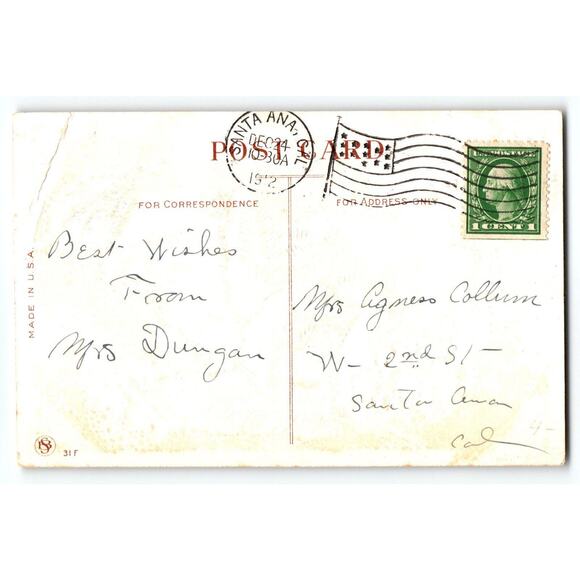 SANTA ANA, CAL.
DEC 24
10-30A
1912
POST CARD
FOR CORRESPONDENCE
FOR ADDRESS ONLY
U.S. POSTAGE
1 CENT 1
MADE IN U.S.A.
Best Wishes
From
Mrs Dungan
Mrs Agness Collum
W- 2nd St-
Santa Ana
Cal
4-
31 F